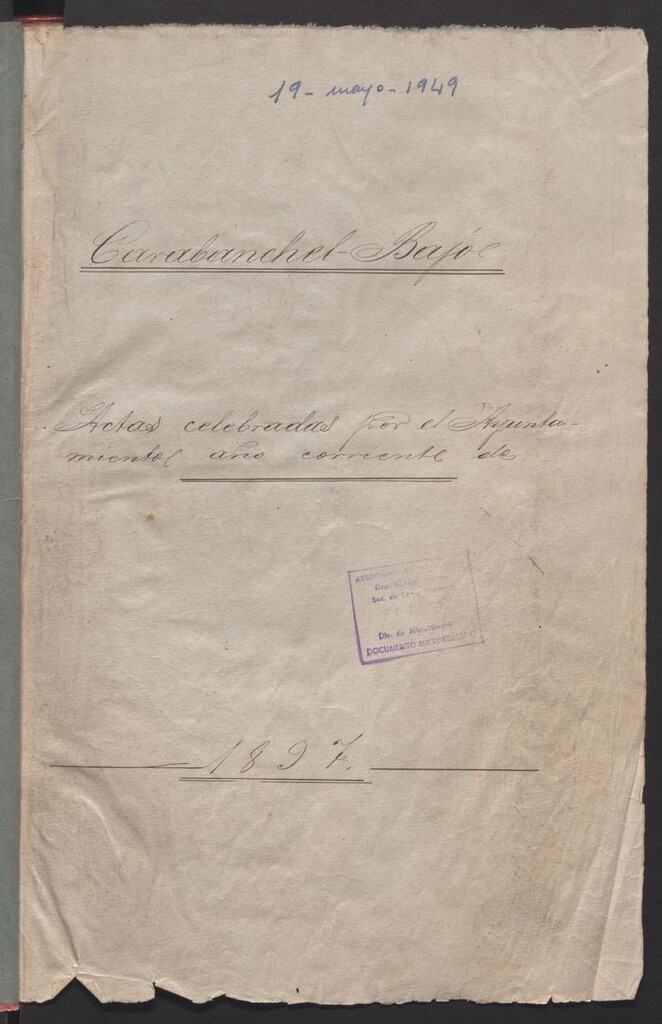 19- mayo- 1949
Carabanchel-Bajo
Actas celebradas por el Ayunta-
miento año corriente de
Div. de Microfilmado
DOCUMENTO MICROFILMADO
1897.